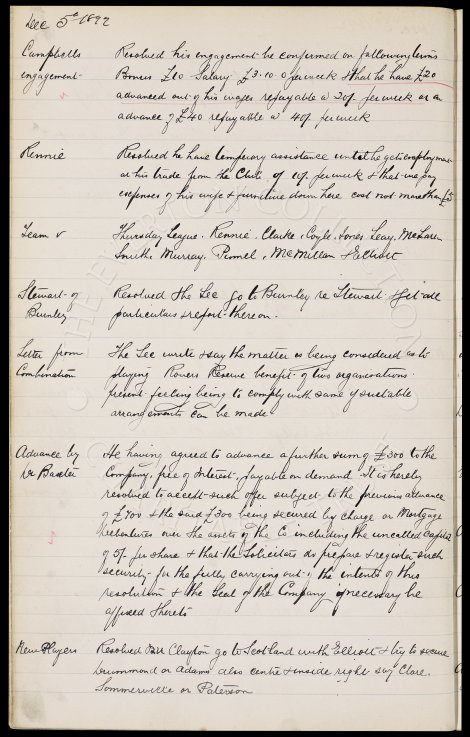 Dec 5th 1892
Campbells engagement
Resolved his engagement be confirmed on following terms
Bonus £10 Salary £3-10-0 per week & that he have £20
advanced out of his wages repayable @ 20/- per week or an
advance of £40 repayable @ 40/- per week
Rennie
Resolved he have temporary assistance until he gets employment
at his trade from the Club of per week & that we pay
expenses of his wife & furniture down here cost not more than £5
Team v
Thursday League. Rennie, Clarke, Coyle, Jones, Leay, McLaren
Smith, Murray, Pinnell, McMillan & Elliott
Stewart of Burnley
Resolved the Sec go to Burnley re Stewart & get all
particulars & report thereon.
Letter from Combination
The Sec write & say the matter is being considered as to
playing Rovers Reserve benefit of two organisations.
present feeling being to comply with same if suitable
arrangements can be made
Advance by Dr Baxter
He having agreed to advance a further sum of £300 to the
Company, free of Interest, payable on demand. It is hereby
resolved to accept such offer subject to the previous advance
of £700 & the said £300 being secured by charge or Mortgage
Debentures over the assets of the Co including the uncalled capital
of 5/- per share & that the Solicitors do prepare & register such
security for the fully carrying out of the intents of this
resolution & the Seal of the Company if necessary be
affixed thereto
New Players
Resolved Mr Clayton go to Scotland with Elliott & try to secure
Drummond or Adams also centre & inside right say Clare.
Sommerville or Paterson